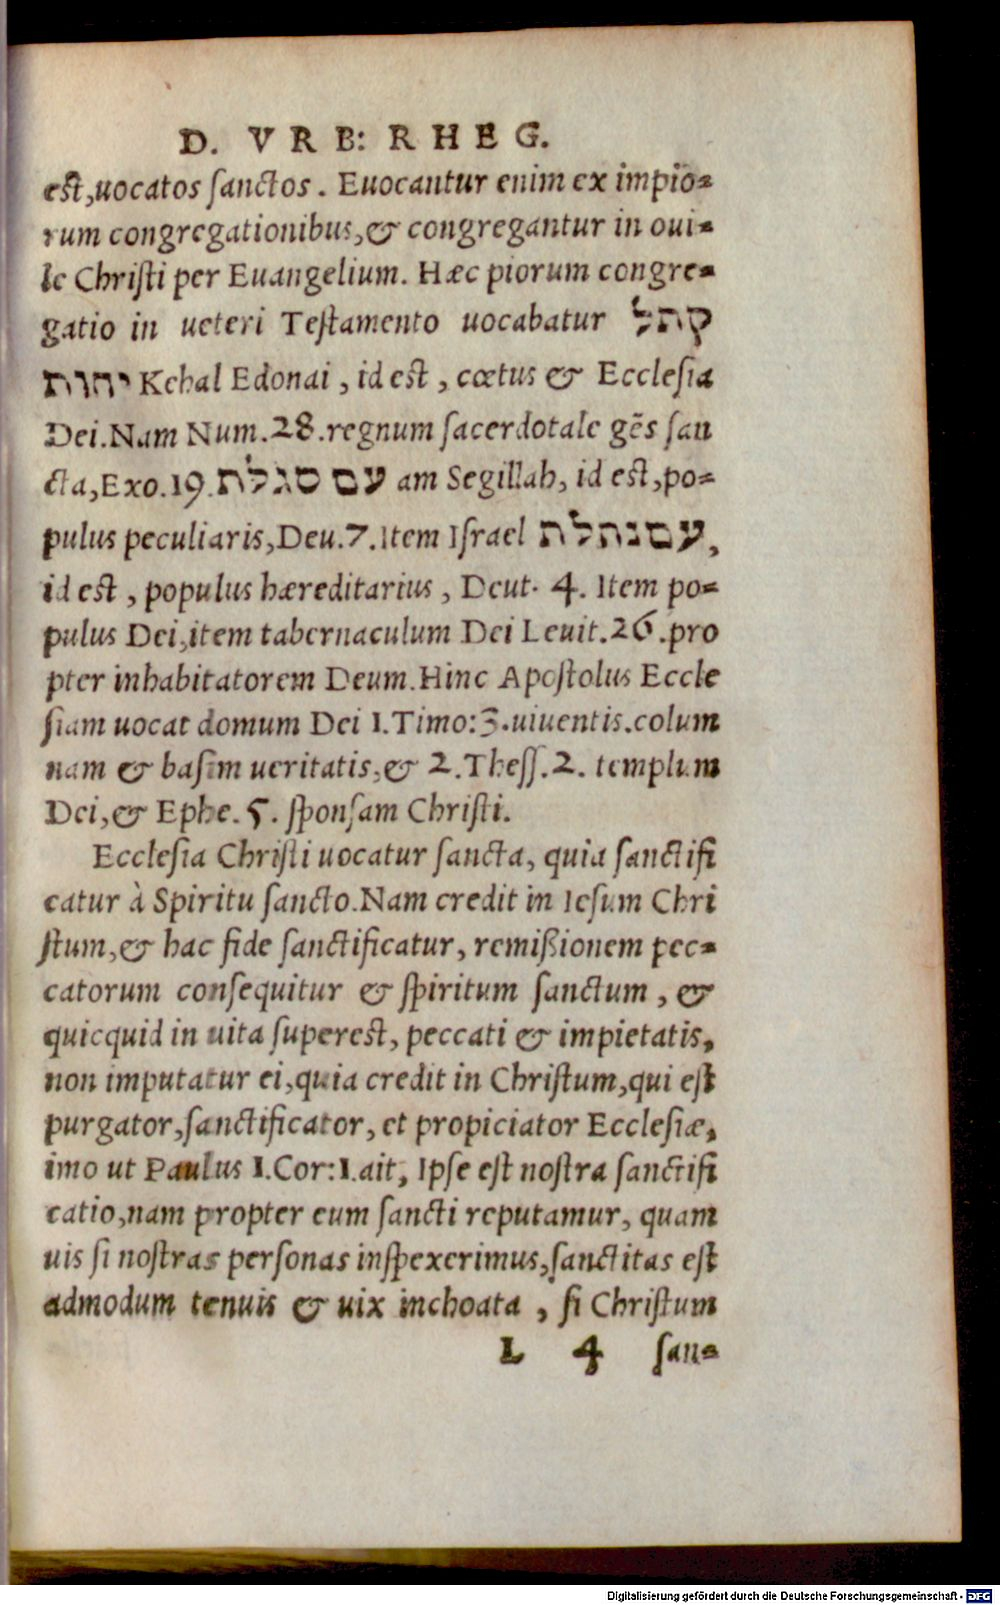 D. VRB: RHEG.
est,uocatos sanctos. Euocantur enim ex impio-
rum congregationibus,& congregantur in oui-
le Christi per Euangelium. Hæc piorum congre-
gatio in ueteri Testamento uocabatur קהל
יהוה Kehal Edonai, id est, cœtus & Ecclesia
Dei.Nam Num.28.regnum sacerdotale gẽs san
cta,Exo.19.עם סגלת am Segillah, id est,po-
pulus peculiaris,Deu.7.Item Israel עםנהלת,
id est, populus hæreditarius, Deut. 4. Item po-
pulus Dei,item tabernaculum Dei Leuit.26.pro
pter inhabitatorem Deum.Hinc Apostolus Eccle
siam uocat domum Dei 1.Timo:3.uiuentis.colum
nam & basim ueritatis,& 2.Thess.2. templum
Dei,& Ephe.5. sponsam Christi.
Ecclesia Christi uocatur sancta, quia sanctifi
catur à Spiritu sancto.Nam credit in Iesum Chri
stum,& hac fide sanctificatur, remißionem pec-
catorum consequitur & spiritum sanctum, &
quicquid in uita superest, peccati & impietatis,
non imputatur ei,quia credit in Christum,qui est
purgator,sanctificator, et propiciator Ecclesiæ,
imo ut Paulus 1.Cor:1.ait, Ipse est nostra sanctifi
catio,nam propter eum sancti reputamur, quam
uis si nostras personas inspexerimus,sanctitas est
admodum tenuis & uix inchoata, si Christum
L 4 san-
Digitalisierung gefördert durch die Deutsche Forschungsgemeinschaft - DFG